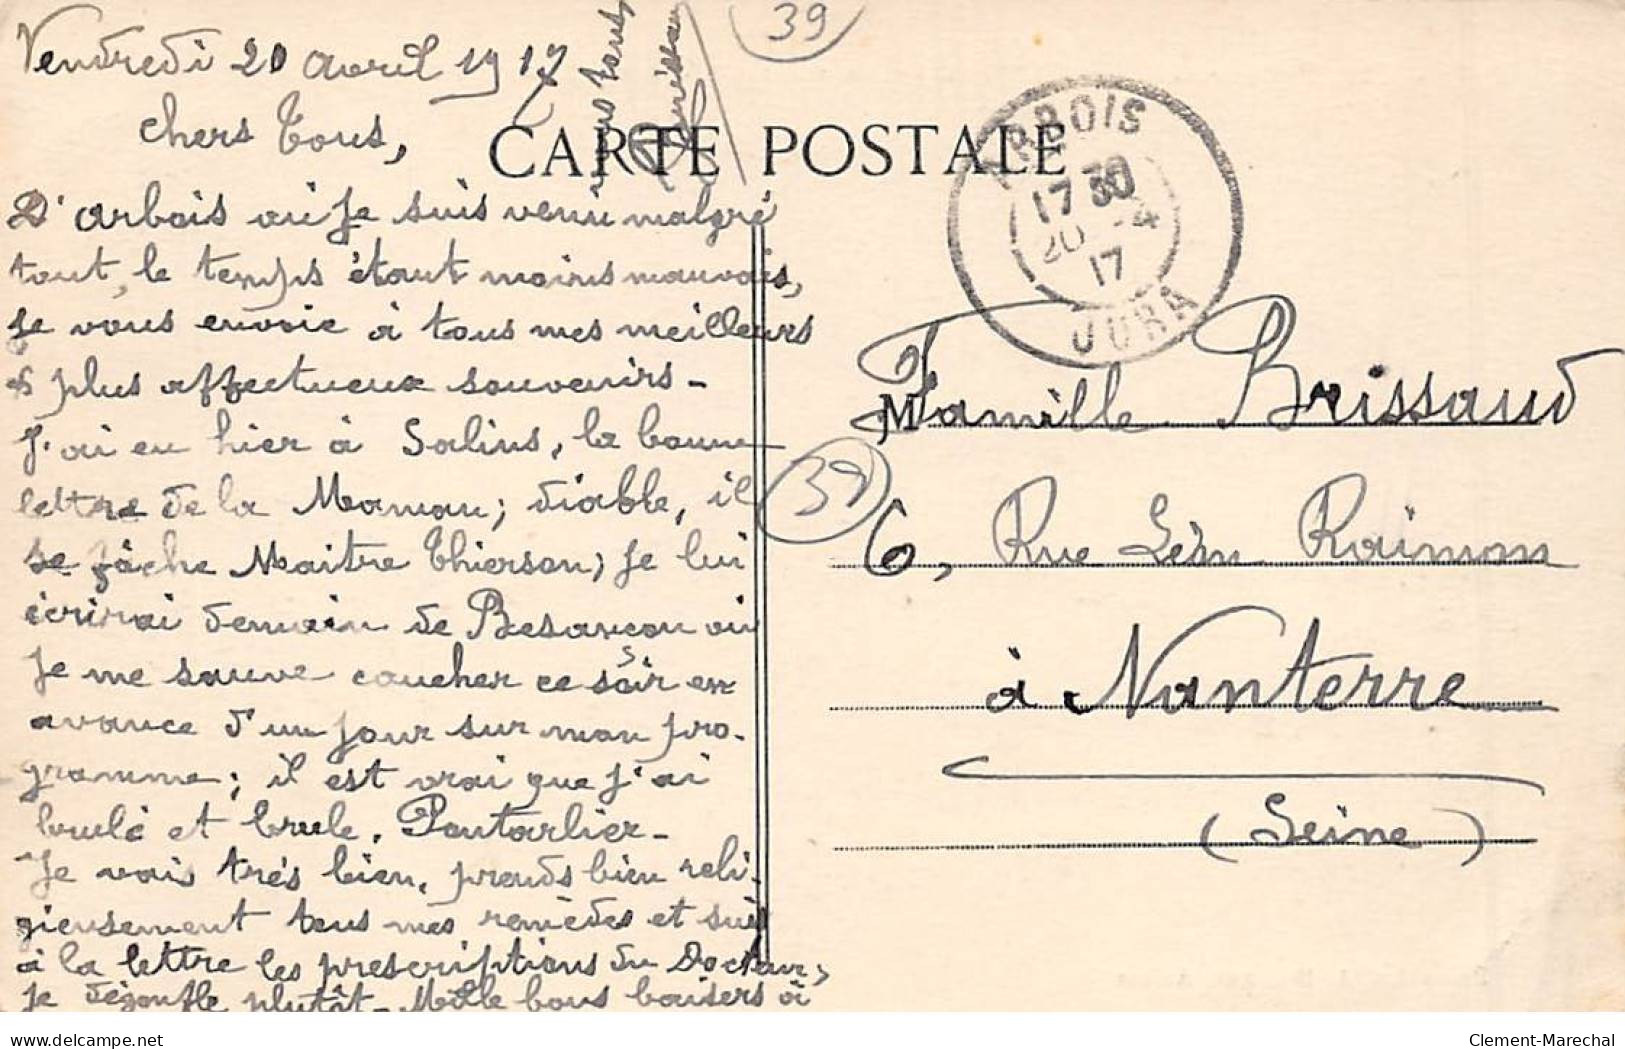 Vendredi 20 avril 1917
Chers Tous,
D'Arbois où je suis venu malgré
tout, le temps étant moins mauvais,
je vous envoie à tous mes meilleurs
& plus affectueux souvenirs -
J'ai eu hier à Salins, la bonne
lettre de la Maman; diable, il
se fâche Maitre Thierson; je lui
écrirai demain de Besançon où
je me sauve coucher ce soir en
avance d'un jour sur mon pro-
gramme; il est vrai que j'ai
brulé et brule, Pontarlier -
Je vais très bien, prends bien reli-
gieusement tous mes remèdes et suis
à la lettre les prescriptions du Docteur,
je dégonfle plutôt - Mille bons baisers à
vous tous
Brissaud
39
CARTE POSTALE
ARBOIS
17 30
20 -4
17
JURA
39
M
Famille Brissaud
6, Rue Léon Raimon
à Nanterre
(Seine)
delcampe.net
Clement-Marechal